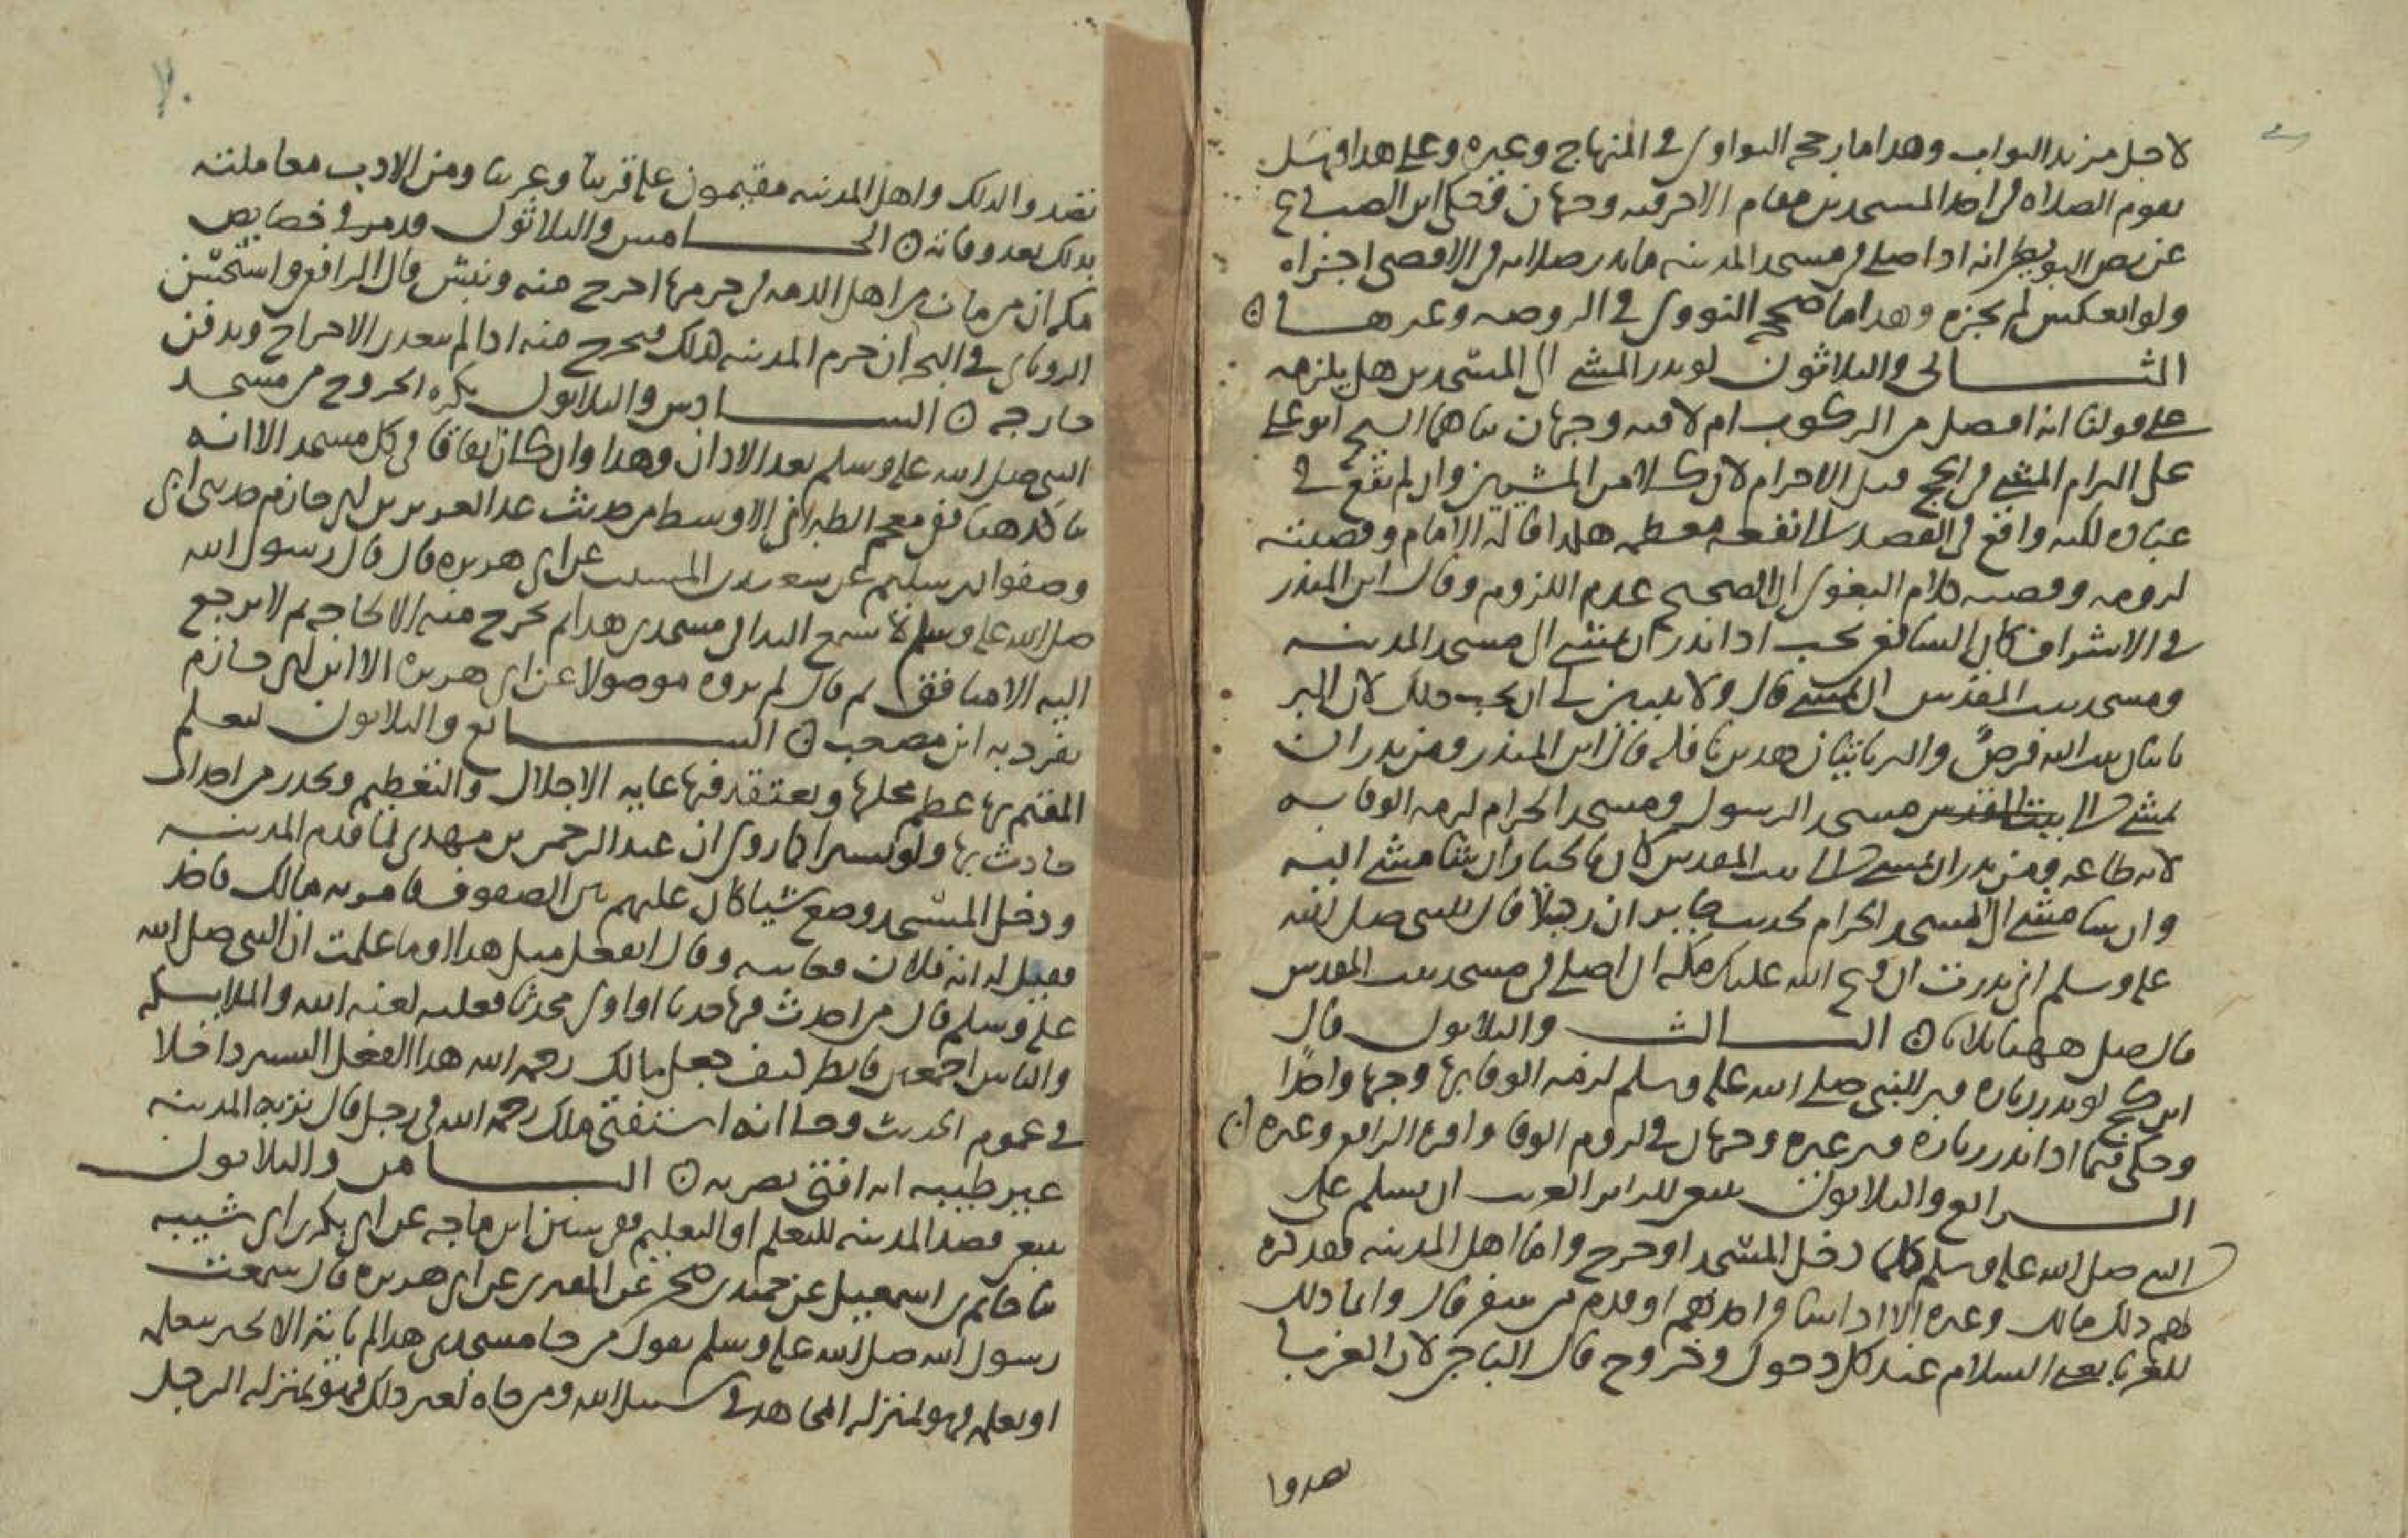 لاجل مزيد الثواب وهذا ما رجحه النواوي في المنهاج وغيره وعلى هذا فهل
يقوم الصلاة في احد المسجدين مقام الاخر فيه وجهان فحكى ابن الصباغ
عن نص البويطي انه اذا صلى في مسجد المدينة ما نذر صلاته في الاقصى اجزاه
ولو انعكس لم يجزه وهذا ما صححه النووي في الروضه وغيرها
الثاني والثلاثون لو نذر المشي الى المسجدين هل يلزمه
على قولنا انه افضل من الركوب ام لا فيه وجهان بناهما الشيخ ابو علي
على التزام المشي في الحج قبل الاحرام لان كلا من المشيين وان لم يقع في
عباده لكنه واقع في القصد الى بقعه معظمه هكذا قاله الامام وقضيته
لزومه وقضيه كلام البغوي ان الصحيح عدم اللزوم وقال ابن المنذر
في الاشراف كان الشافعي يحب اذا نذر ان يمشي الى مسجد المدينه
ومسجد بيت المقدس ان يمشي قال ولا يتبين لي ان يجب ذلك لان البر
باتيان بيت الله فرض والبر باتيان هذين نافله قال ابن المنذر ومن نذر ان
يمشي الى بيت المقدس مسجد الرسول ومسجد الحرام لزمه الوفا به
لانه طاعه ومن نذر ان يمشي الى بيت المقدس كان بالخيار ان شا مشى اليه
وان شا مشى الى المسجد الحرام لحديث جابر ان رجلا قال للنبي صلى الله
عليه وسلم اني نذرت ان فتح الله عليك مكه ان اصلي في مسجد بيت المقدس
قال صل ههنا ثلاثا الثالث والثلاثون قال
ابن كج لو نذر زياره قبر النبي صلى الله عليه وسلم لزمه الوفا بها وجها واحدا
وحكى فيما اذا نذر زياره قبر غيره وجهان في لزوم الوفا واقره الرافعي وغيره
الرابع والثلاثون ينبغي للزاير الغريب ان يسلم على
النبي صلى الله عليه وسلم كلما دخل المسجد او خرج واما اهل المدينه فقد كره
لهم ذلك مالك وغيره الا اذا سافر احدهم او قدم من سفر قال وانما ذلك
للغربا يعني السلام عند كل دخول وخروج قال الباجي لان الغربا
قصدوا
٧٠
قصدوا لذلك واهل المدينه مقيمون على قربنا وغربنا ومن الادب معاملته
بذلك بعد وفاته الخامس والثلاثون قد مر في خصايص
مكه ان من مات من اهل الذمه في حرمها اخرج منه ونبش قال الرافعي واستحسن
الروياني في البحر ان حرم المدينه كذلك فيخرج منه اذا لم يتعذر الاخراج ويدفن
خارجه السادس والثلاثون يكره الخروج من مسجد
النبي صلى الله عليه وسلم بعد الاذان وهذا وان كان يعاقا في كل مسجد الا انه
يتاكد هنا ففي معجم الطبراني الاوسط من حديث عبد العزيز بن ابي حازم حدثني ابي
وصفوان بن سليم عن سعيد بن المسيب عن ابي هريره قال قال رسول الله
صلى الله عليه وسلم لا يسمع الندا في مسجدي هذا ثم يخرج منه الا لحاجه ثم لا يرجع
اليه الا منافق ثم قال لم يروه موصولا عن ابي هريره الا ابن ابي حازم
تفرد به ابن مصعب السابع والثلاثون ليعلم
المقيم بها عظم محلها ويعتقد فيها غايه الاجلال والتعظيم ويحذر من احداث
حادث بها ولو يسيرا كما روي ان عبد الرحمن بن مهدي لما قدم المدينه
ودخل المسجد وضع شيا كان عليه بين الصفوف فامر به مالك فاخذ
فقيل له انه فلان فعاتبه وقال اتفعل مثل هذا اوما علمت ان النبي صلى الله
عليه وسلم قال من احدث فيها حدثا او اوى محدثا فعليه لعنه الله والملايكه
والناس اجمعين فانظر كيف جعل مالك رحمه الله هذا الفعل اليسير داخلا
في عموم الحديث وجا انه استفتي مالك رحمه الله في رجل قال تربه المدينه
غير طيبه انه افتى بضربه الثامن والثلاثون
ينبغي قصد المدينه للتعلم او التعليم ففي سنن ابن ماجه عن ابي بكر بن ابي شيبه
ثنا حاتم بن اسمعيل عن حميد بن صخر عن المقبري عن ابي هريره قال سمعت
رسول الله صلى الله عليه وسلم يقول من جا مسجدي هذا لم ياته الا لخير يتعلمه
او يعلمه فهو بمنزله المجاهد في سبيل الله ومن جاه لغير ذلك فهو بمنزله الرجل